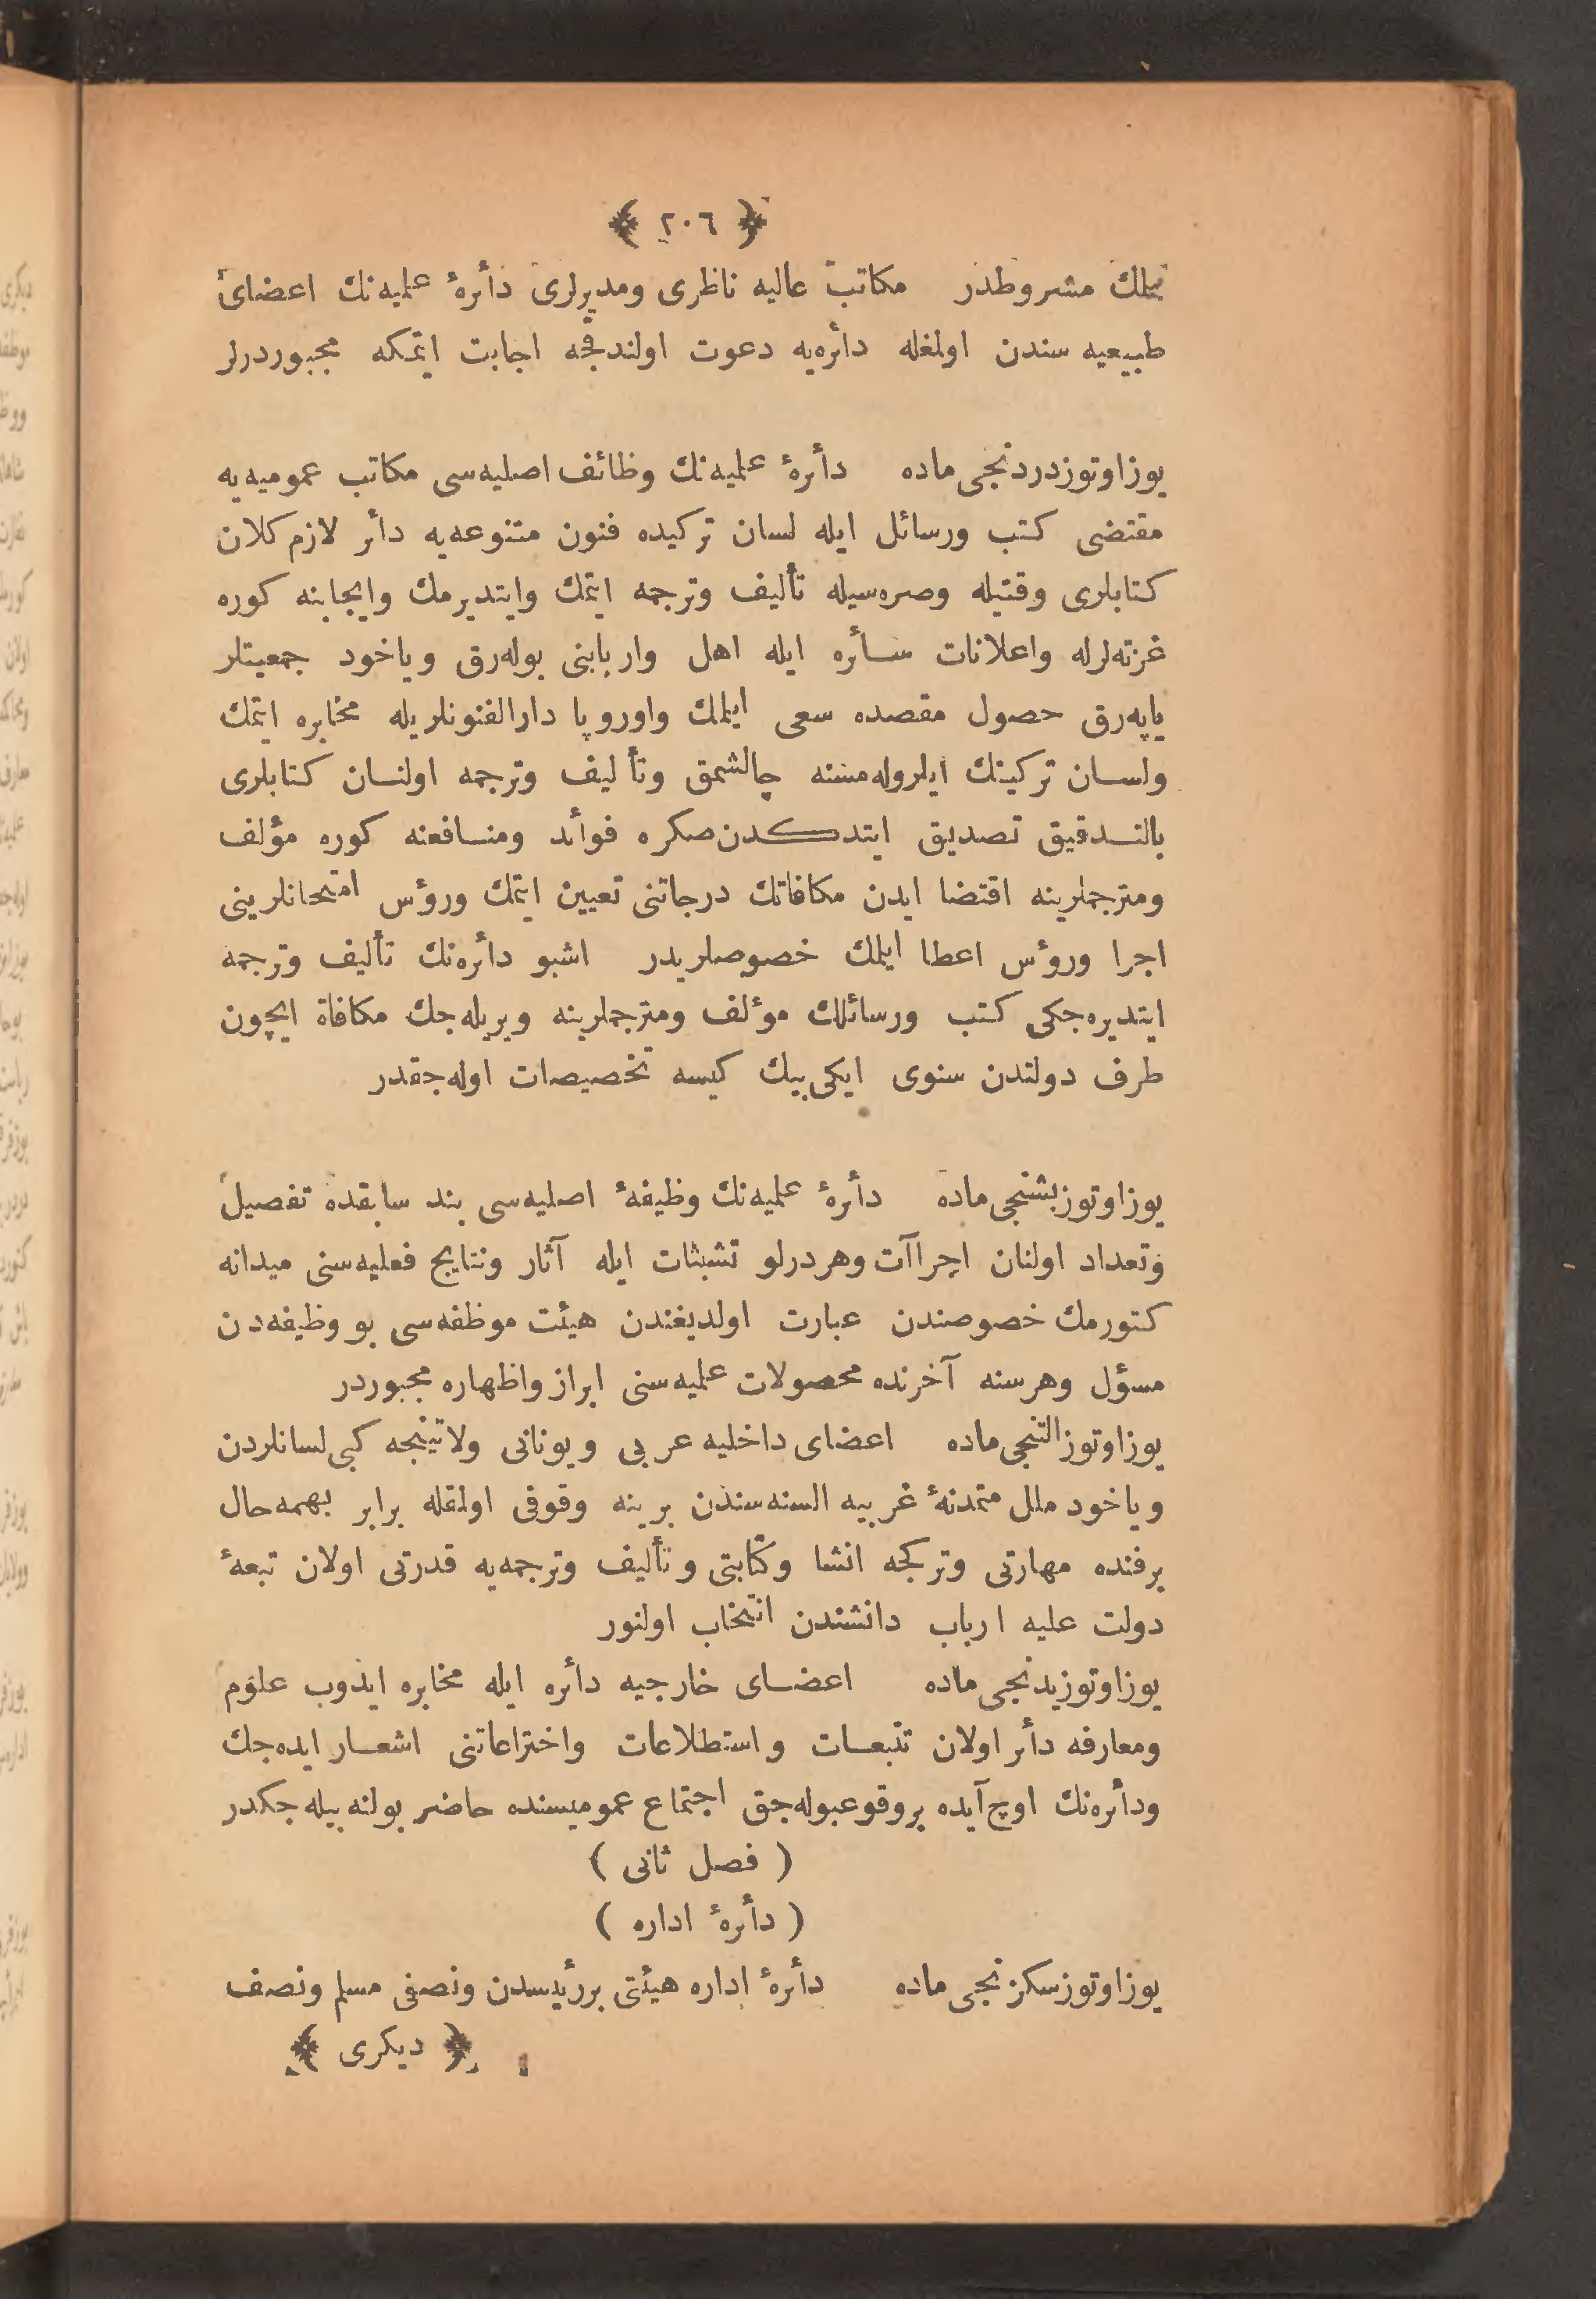 ﴿ ٢٠٦ ﴾
بیلمك مشروطدر مكاتب عالیه ناظری ومدیرلری دائرهٔ علمیه‌نك اعضای
طبیعیه سندن اولمغله دائره‌یه دعوت اولندقجه اجابت ایتمكه مجبوردرلر
یوزاوتوزدردنجی ماده دائرهٔ علمیه‌نك وظائف اصلیه‌سی مكاتب عمومیه‌یه
مقتضی كتب ورسائل ایله لسان تركیده فنون متنوعه‌یه دائر لازم كلان
كتابلری وقتیله وصره‌سیله تألیف وترجمه ایتمك وایتدیرمك وایجابنه كوره
غزته‌لرله واعلانات سائره ایله اهل واربابنی بوله‌رق ویاخود جمعیتلر
یاپه‌رق حصول مقصده سعی ایلمك واوروپا دارالفنونلریله مخابره ایتمك
ولسان تركینك ایلروله‌مسنه چالشمق وتألیف وترجمه اولنان كتابلری
بالتدقیق تصدیق ایتدكدن‌صكره فوائد ومنافعنه كوره مؤلف
ومترجملرینه اقتضا ایدن مكافاتك درجاتنی تعیین ایتمك ورؤس امتحانلرینی
اجرا ورؤس اعطا ایلمك خصوصلریدر اشبو دائره‌نك تألیف وترجمه
ایتدیره‌جكی كتب ورسائلك مؤلف ومترجملرینه ویریله‌جك مكافاة ایچون
طرف دولتدن سنوی ایكی‌بیك كیسه تخصیصات اوله‌جقدر
یوزاوتوزبشنجی ماده دائرهٔ علمیه‌نك وظیفهٔ اصلیه‌سی بند سابقده تفصیل
وتعداد اولنان اجراآت وهردرلو تشبثات ایله آثار ونتایج فعلیه‌سنی میدانه
كتورمك خصوصندن عبارت اولدیغندن هیئت موظفه‌سی بو وظیفه‌دن
مسؤل وهرسنه آخرنده محصولات علمیه‌سنی ابراز واظهاره مجبوردر
یوزاوتوزالتنجی ماده اعضای داخلیه عربی ویونانی ولاتینجه كبی لسانلردن
ویاخود ملل متمدنهٔ غربیه السنه‌سندن برینه وقوفی اولمقله برابر بهمه‌حال
برفنده مهارتی وتركجه انشا وكتابتی وتألیف وترجمه‌یه قدرتی اولان تبعهٔ
دولت علیه ارباب دانشندن انتخاب اولنور
یوزاوتوزیدنجی ماده اعضای خارجیه دائره ایله مخابره ایدوب علوم
ومعارفه دائر اولان تتبعات واستطلاعات واختراعاتنی اشعار ایده‌جك
ودائره‌نك اوچ آیده بروقوعبوله‌جق اجتماع عمومیسنده حاضر بولنه بیله‌جكدر
( فصل ثانی )
( دائرهٔ اداره )
یوزاوتوزسكزنجی ماده دائرهٔ اداره هیئتی بررئیسدن ونصفی مسلم ونصف
﴿ دیكری ﴾